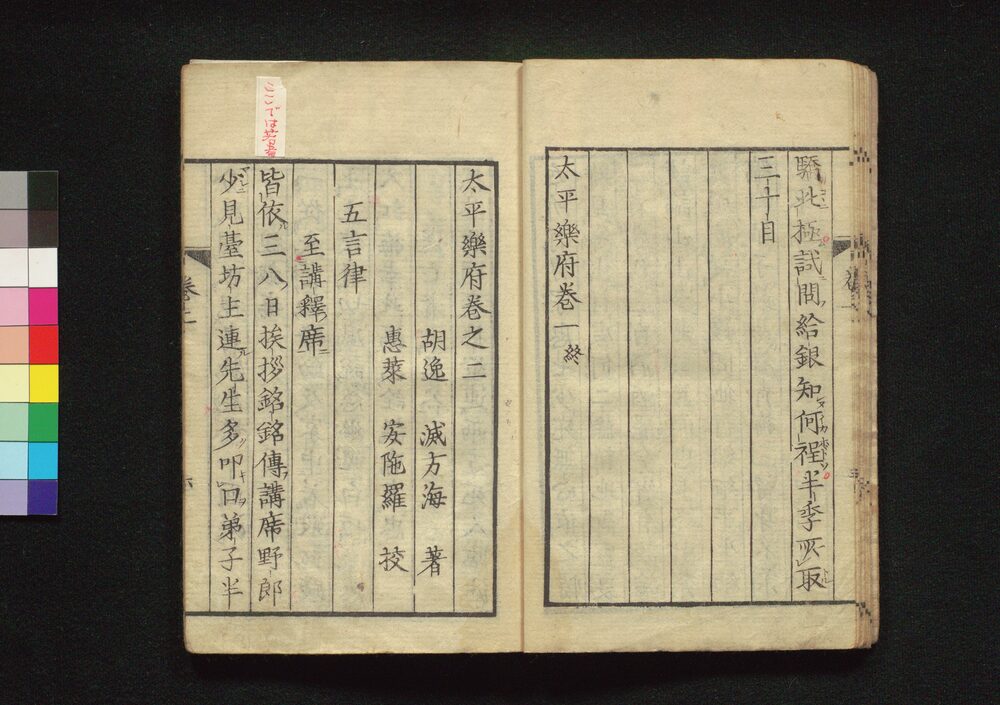 驕北極試問給銀知何程半季所取
三十目
太平樂府卷一終
太平樂府卷之二
胡逸 滅方海 著
惠萊 安陀羅 挍
五言律
至講釋席
皆依三八日挨拶銘銘傳講席野郎
少見臺坊主連先生多叩口弟子半
ここでは
卷二